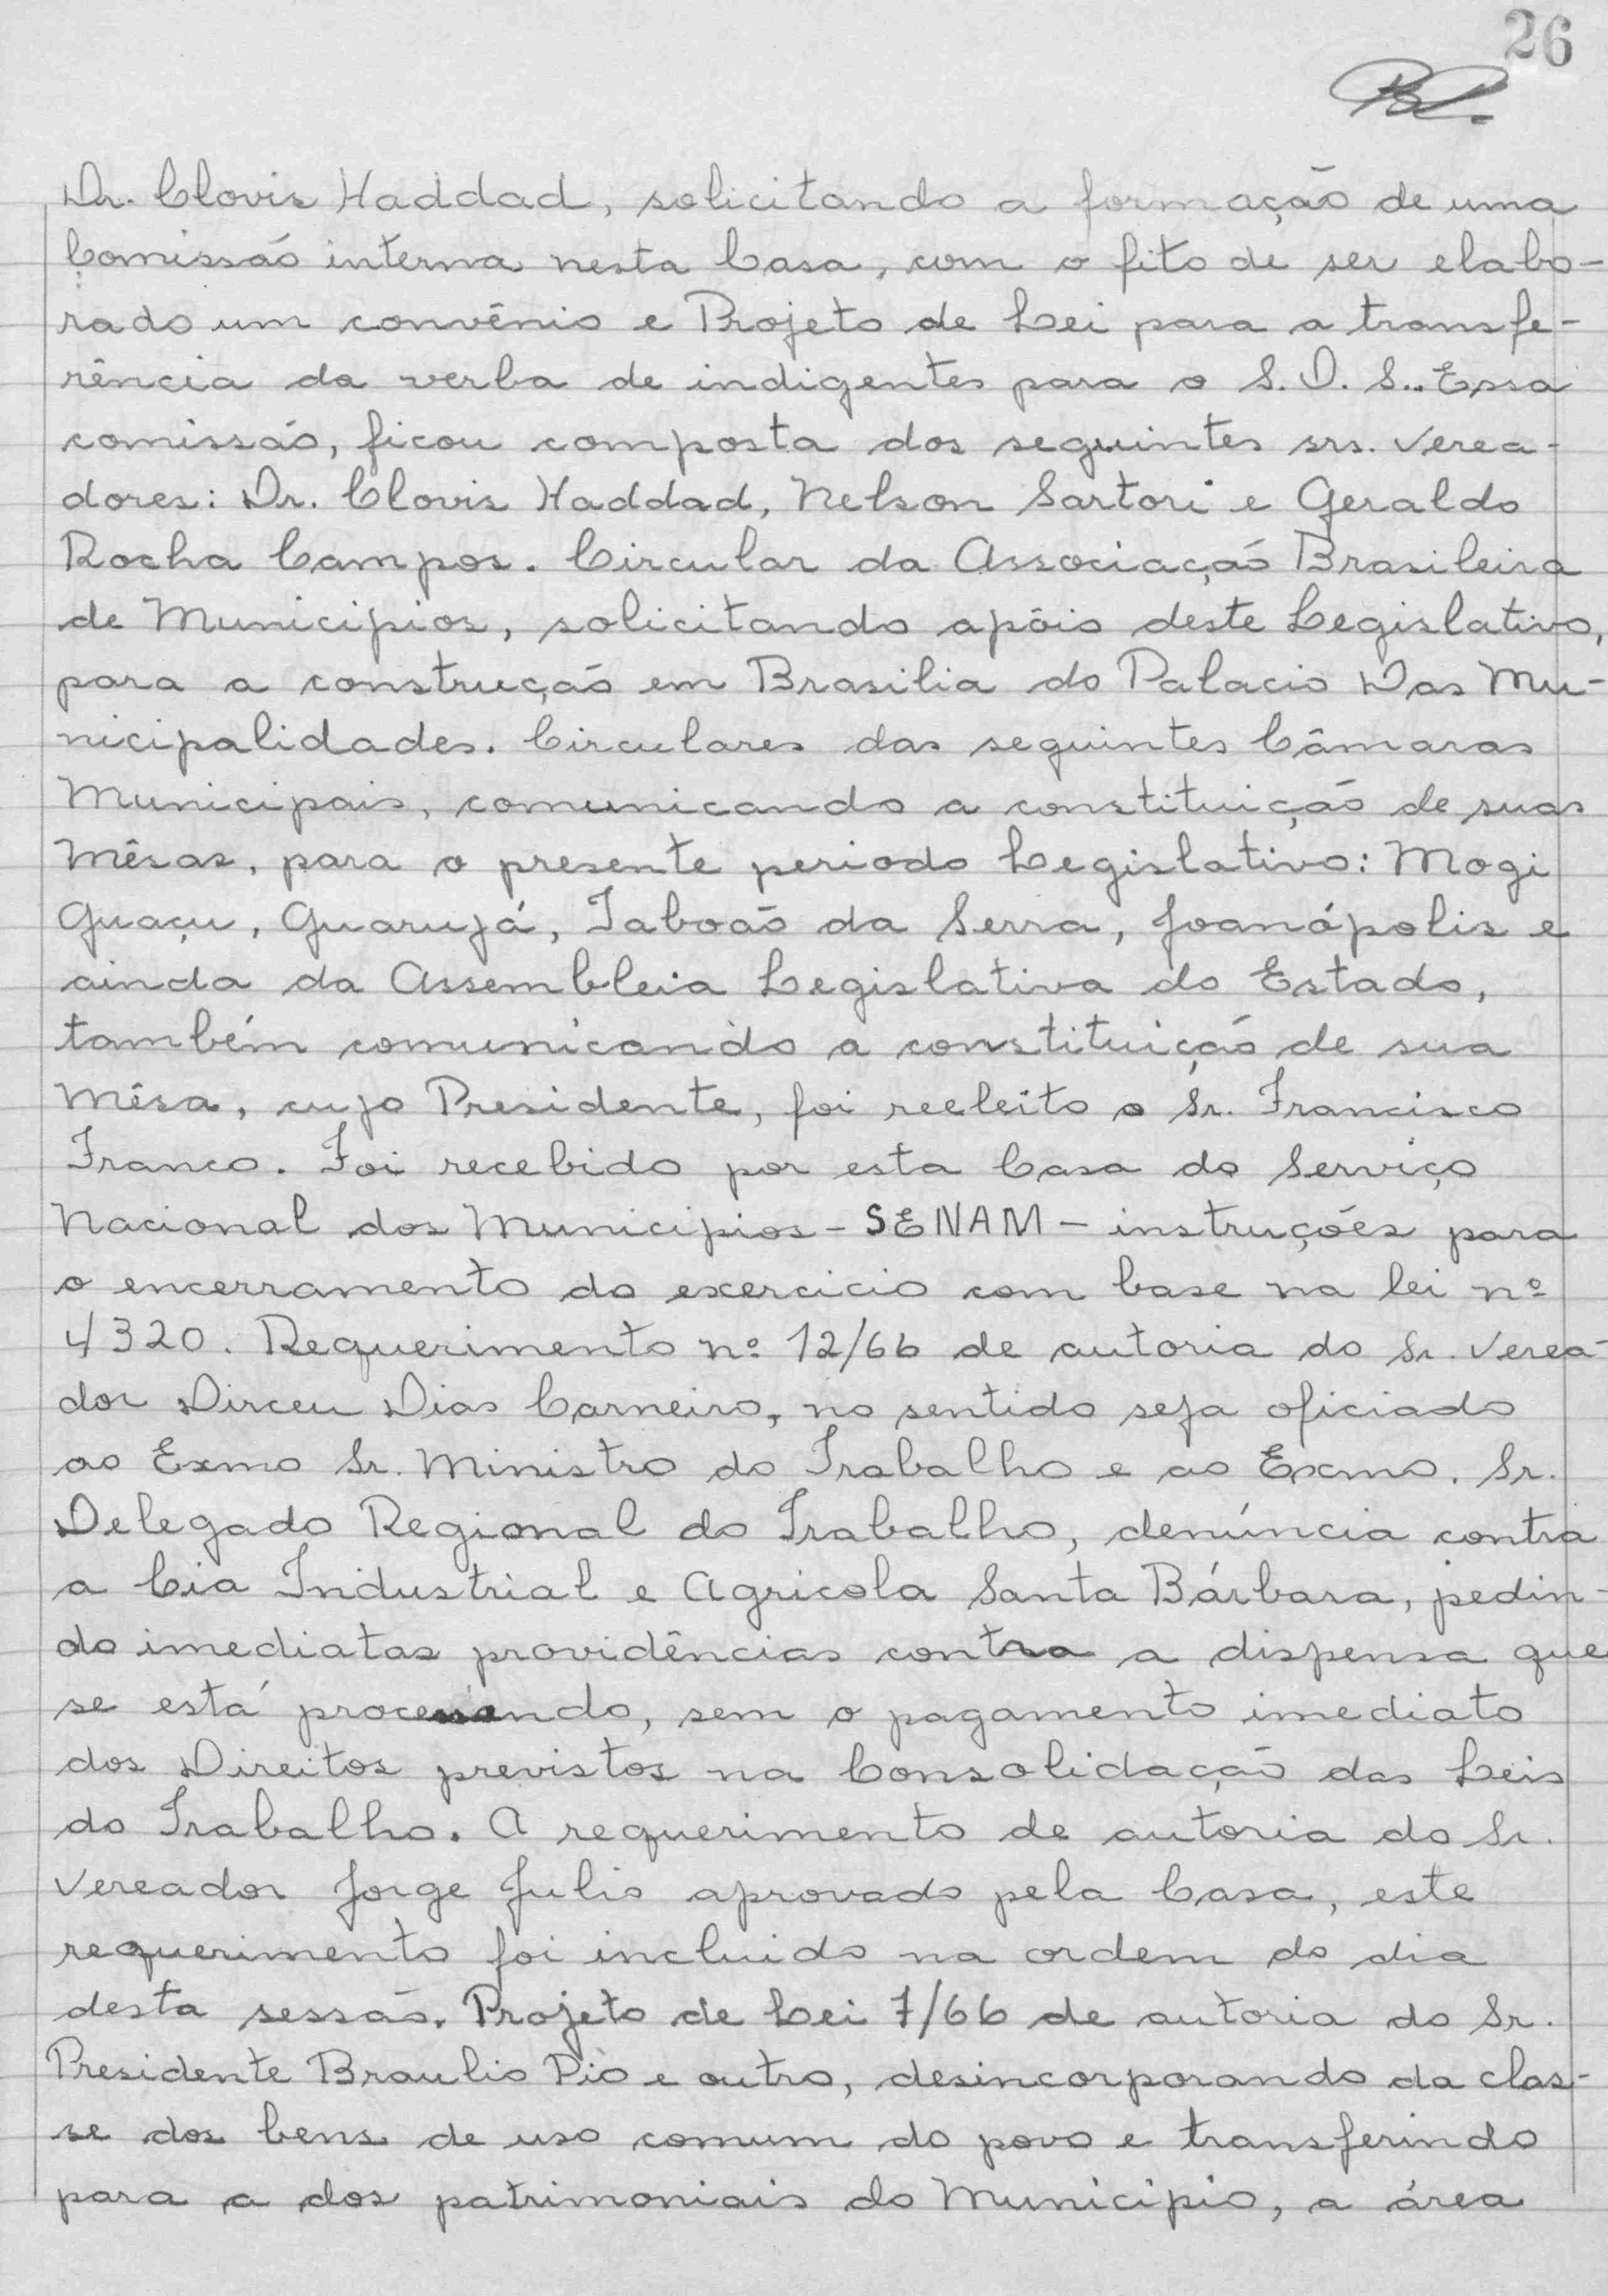 26
Dr. Clovis Haddad, solicitando a formação de uma
Comissão interna nesta Casa, com o fito de ser elabo-
rado um convênio e Projeto de Lei para a transfe-
rência da verba de indigentes para o S.D.S.. Essa
comissão, ficou composta dos seguintes srs. verea-
dores: Dr. Clovis Haddad, Nelson Sartori e Geraldo
Rocha Campos. Circular da Associação Brasileira
de Municipios, solicitando apôio deste Legislativo,
para a construção em Brasilia do Palacio Das Mu-
nicipalidades. Circulares das seguintes Câmaras
Municipais, comunicando a constituição de suas
Mêsas, para o presente periodo Legislativo: Mogi
Guaçu, Guarujá, Taboão da Serra, Joanópolis e
ainda da Assembleia Legislativa do Estado,
também comunicando a constituição de sua
Mêsa, cujo Presidente, foi reeleito o Sr. Francisco
Franco. Foi recebido por esta Casa do Serviço
Nacional dos Municipios - SENAM - instruções para
o encerramento do exercicio com base na lei nº
4320. Requerimento nº 12/66 de autoria do Sr. Verea-
dor Dirceu Dias Carneiro, no sentido seja oficiado
ao Exmo Sr. Ministro do Trabalho e ao Exmo. Sr.
Delegado Regional do Trabalho, denúncia contra
a Cia Industrial e Agricola Santa Bárbara, pedin-
do imediatas providências contra a dispensa que
se está processando, sem o pagamento imediato
dos Direitos previstos na Consolidação das Leis
do Trabalho. A requerimento de autoria do Sr.
Vereador Jorge Julio aprovado pela Casa, este
requerimento foi incluido na ordem do dia
desta sessão. Projeto de Lei 7/66 de autoria do Sr.
Presidente Braulio Pio e outro, desincorporando da clas-
se dos bens de uso comum do povo e transferindo
para a dos patrimoniais do Municipio, a área